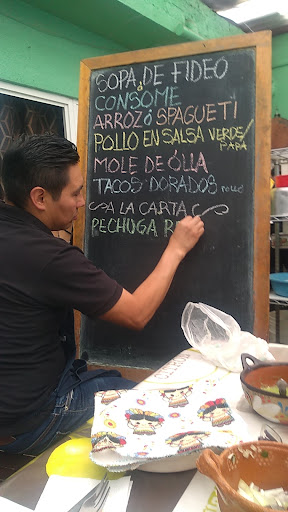 SOPA DE FIDEO
ó
CONSOME
ARROZ ó SPAGUETI
POLLO EN SALSA VERDE/
PAPA
MOLE DE OLLA
TACOS DORADOS
A LA CARTA
PECHUGA R